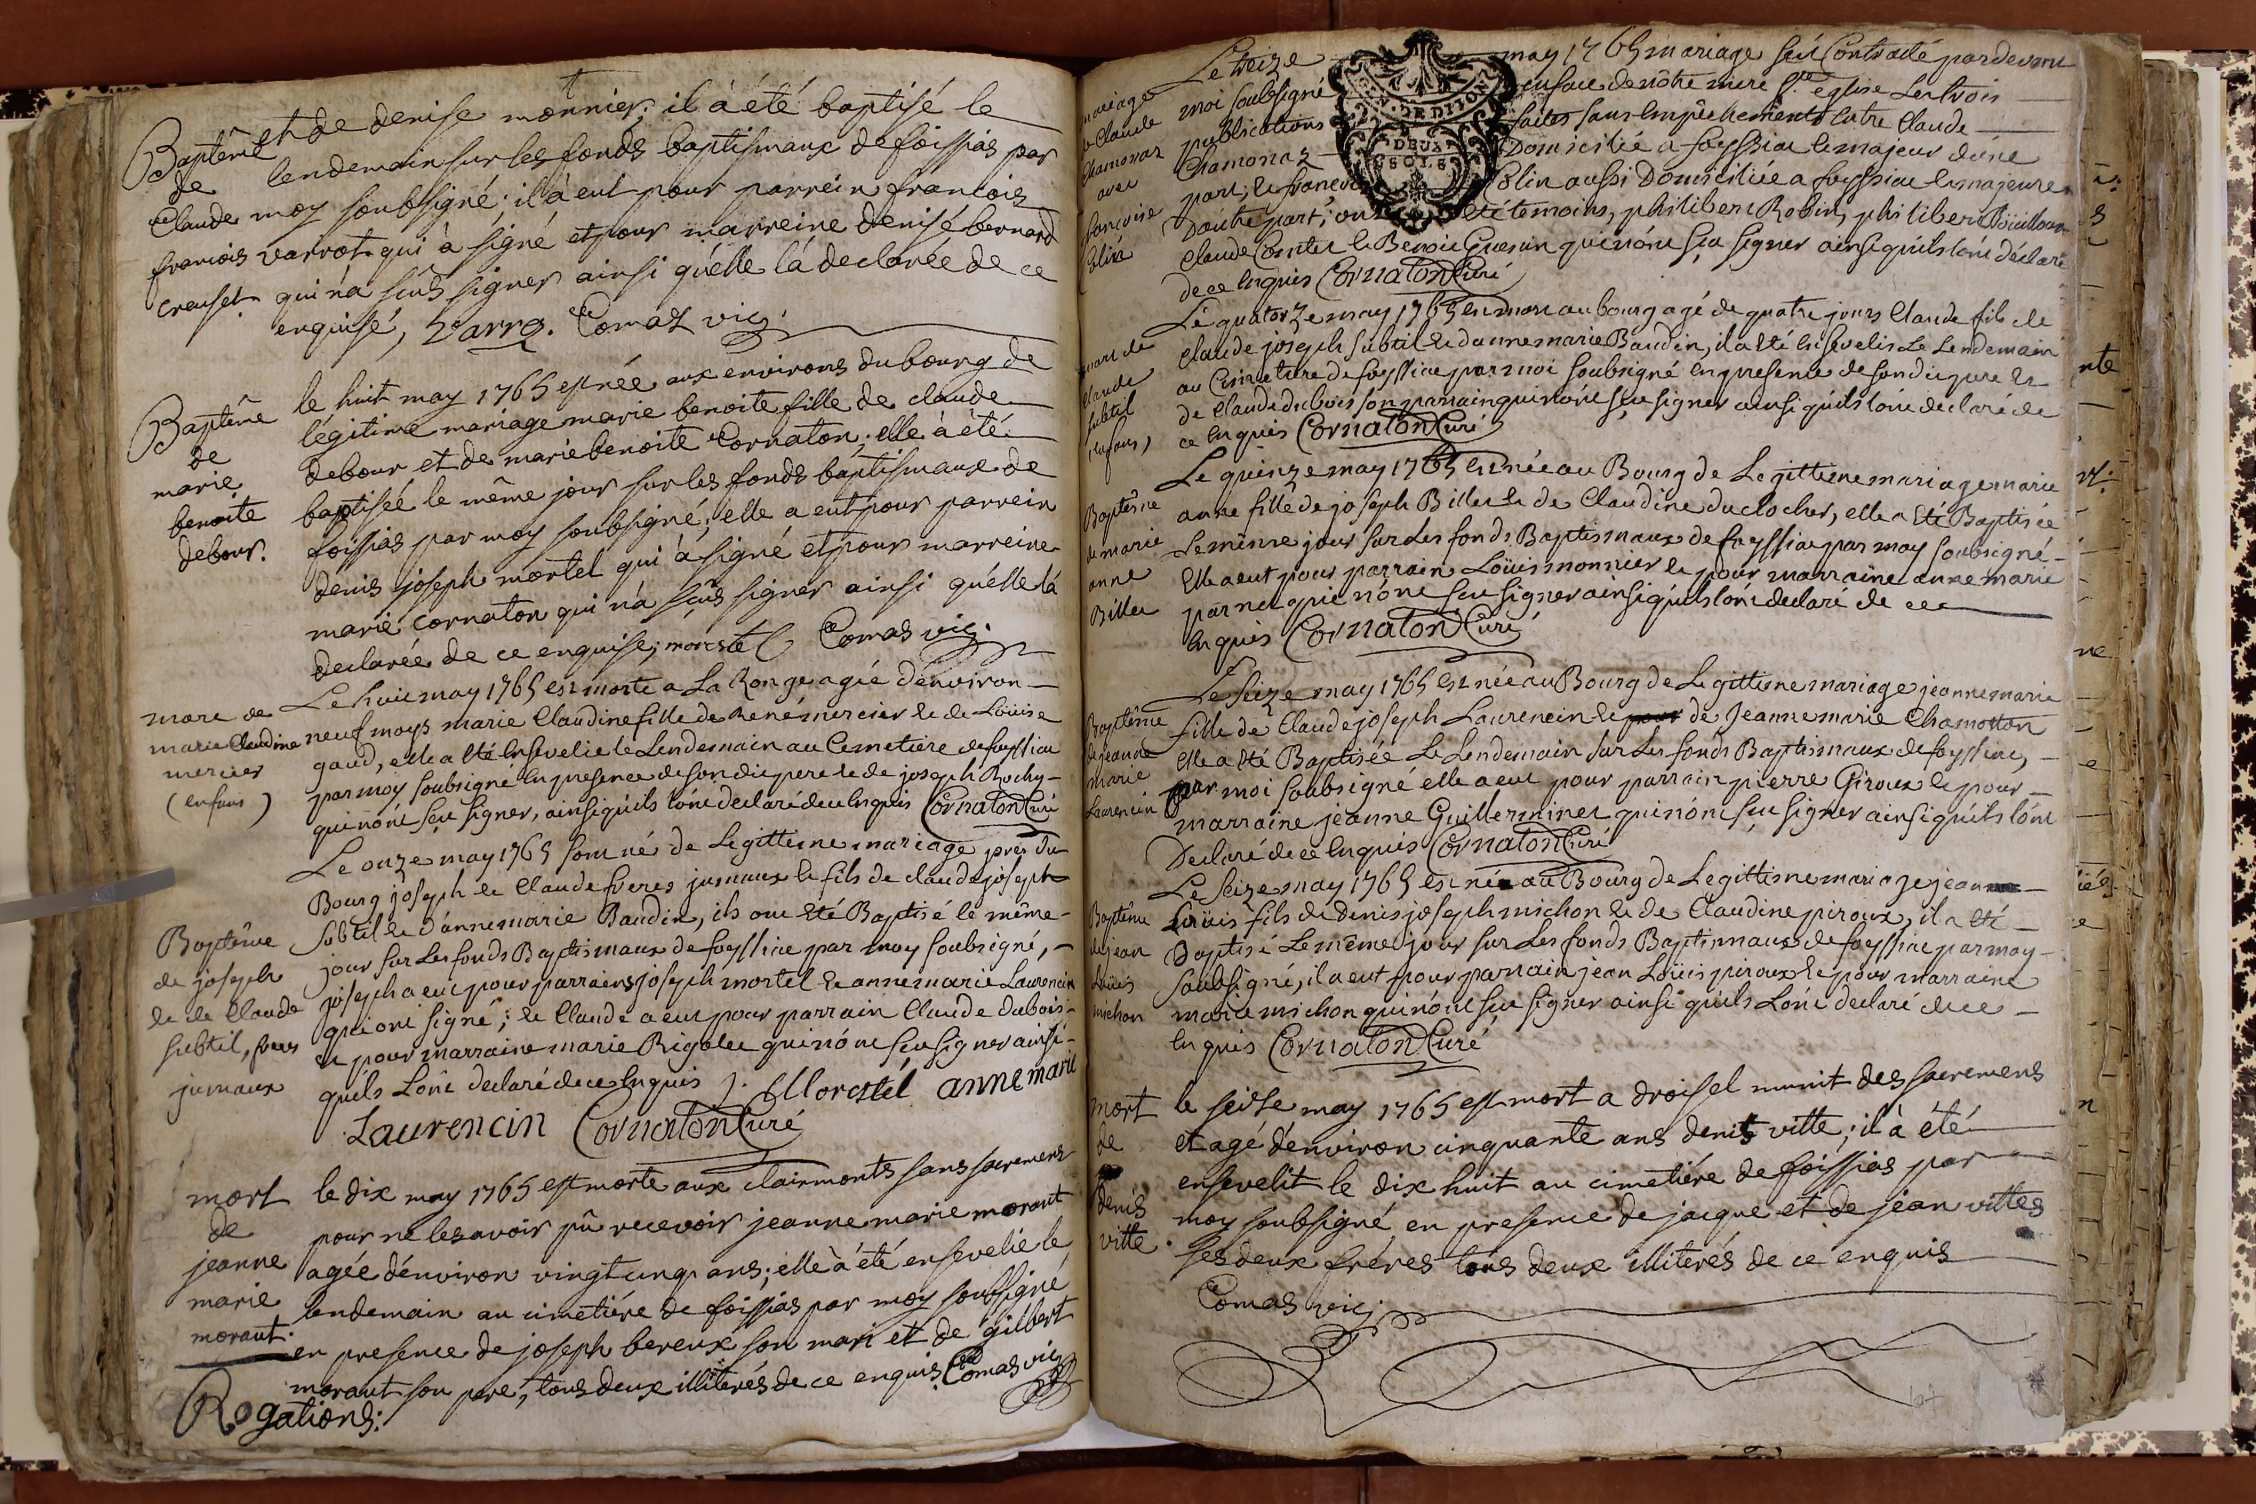 Baptême
de
Claude
francois
creuset.
et de denise monnier; il à été baptisé le
lendemain sur les fonds baptismaux de foissias par
moy soubsigné; il à eut pour parrein francois
varrot qui à signé et pour marreine denise bernard
qui n'a scus signer ainsi qu'elle l'a declarée de ce
enquise, Varro. Comas vic.
Baptême
de
marie
benoite
debour.
le huit may 1765 est née aux environs du bourg de
légitime mariage marie benoite fille de claude
debour et de marie benoite Cornaton; elle à été
baptisée le même jour sur les fonds baptismaux de
foissias par moy soubsigné; elle a eut pour parrein
denis joseph mortel qui à signé et pour marreine
marie cornaton qui n'a scus signer ainsi qu'elle l'à
declarée de ce enquise; morestel Comas vic.
mort de
marie Claudine
mercier
(enfant)
Le huit may 1765 est morte a La Ronge agée d'environ
neuf moys marie Claudine fille de René mercier et de Loüise
gaud, elle a été Ensevelie le Lendemain au Cemetiere de foyssiat
par moy soubsigné En presence de son dit pere et de joseph Rochy
qui n'ônt sçu signer, ainsi qu'ils l'ônt declaré de ce Enquis Cornaton Curé
Baptême
de joseph
et de Claude
subtil, freres
jumaux
Le onze may 1765 sont né de Legittime mariage près du
Bourg joseph et Claude freres jumaux et fils de claude joseph
subtil et d'anne marie Baudin, ils ont été Baptisé le même
jour sur Les fonds Baptismaux de foyssiat par moy soubsigné,
joseph a eut pour parrains joseph mortel et anne marie Laurencin
qui ont signé; et Claude a eut pour parrain Claude dubois
et pour marraine marie Rigolet qui n'ônt sçu signer ainsi
qu'ils L'ônt declaré de ce Enquis J. Morestel anne marie
Laurencin Cornaton Curé
mort
de
jeanne
marie
morant.
le dix may 1765 est morte aux clairmonts sans sacremens
pour ne les avoir pû recevoir jeanne marie morant
agée d'environ vingt cinq ans; elle à été ensevelie le
lendemain au cimetiére de foissias par moy soubsigné
en presence de joseph bereux son mari et de gilbert
morant son pere, tous deux illiterés de ce enquis. Comas vic
Rogations:
mariage
de Claude
Chamonaz
avec
françoise
Blin
GÉN. DE DIJON
DEUX
SOLS
Le treize may 1765 mariage fut Contracté pardevant
moi soubsigné en face de nôtre mere Ste église Les trois
publications faites sans Empêchements Entre Claude
Chamonaz Domicilié a foyssiat et majeur d'une
part; et francoise Blin aussi Domiciliée a foyssiat et majeure
D'autre part; ont été temoins, philibert Robin, philibert Boüillon
Claude Contet et Benoit Guerin qui n'ônt sçu signer ainsi qu'ils l'ônt déclaré
de ce Enquis Cornaton Curé
mort de
claude
subtil
(enfant)
Le quatorze may 1765 est mort au bourg agé de quatre jours Claude fils de
Claude joseph subtil et d'anne marie Baudin, il a été Ensevelis Le Lendemain
au Cimetiere de foyssiat par moi soubsigné En presence de son dit pere et
de Claude dubois son parrain qui n'ônt sçu signer ainsi qu'ils l'ônt declaré de
ce Enquis Cornaton Curé
Baptême
de marie
anne
Billet
Le quinze may 1765 est née au Bourg de Legittime mariage marie
anne fille de joseph Billet et de Claudine duclocher, elle a été Baptisée
Le même jour sur Les fonds Baptismaux de foyssiat par moy soubsigné
Elle a eut pour parrain Loüis monnier et pour marraine anne marie
parnet qui n'ônt sçu signer ainsi qu'ils l'ônt declaré de ce
Enquis Cornaton Curé
Baptême
de jeanne
marie
Laurencin
Le seize may 1765 est née au Bourg de Legittime mariage jeanne marie
fille de Claude joseph Laurencin et de Jeanne marie Chamotton
Elle a été Baptisée Le Lendemain sur Les fonds Baptismaux de foyssiat,
par moi soubsigné elle a eut pour parrain pierre Giroux et pour
marraine jeanne Guillerminet qui n'ônt sçu signer ainsi qu'ils l'ônt
Declaré de ce Enquis Cornaton Curé
Baptême
de jean
Loüis
michon
Le seize may 1765 est né au Bourg de Legittime mariage jean
Loüis fils de Denis joseph michon et de Claudine piroux, il a été
Baptisé Le même jour sur Les fonds Baptismaux de foyssiat par moy
soubsigné, il a eut pour parrain jean Loüis piroux et pour marraine
marie michon qui n'ônt sçu signer ainsi qu'ils L'ônt declaré de ce
Enquis Cornaton Curé
mort
de
denis
vitte.
le seise may 1765 est mort a droisel munit des sacremens
et agé d'environ cinquante ans denis vitte; il à été
ensevelit le dix huit au cimetiére de foissias par
moy soubsigné en presence de jacque et de jean vittes
ses deux fréres tous deux illiterés de ce enquis
Comas vic;